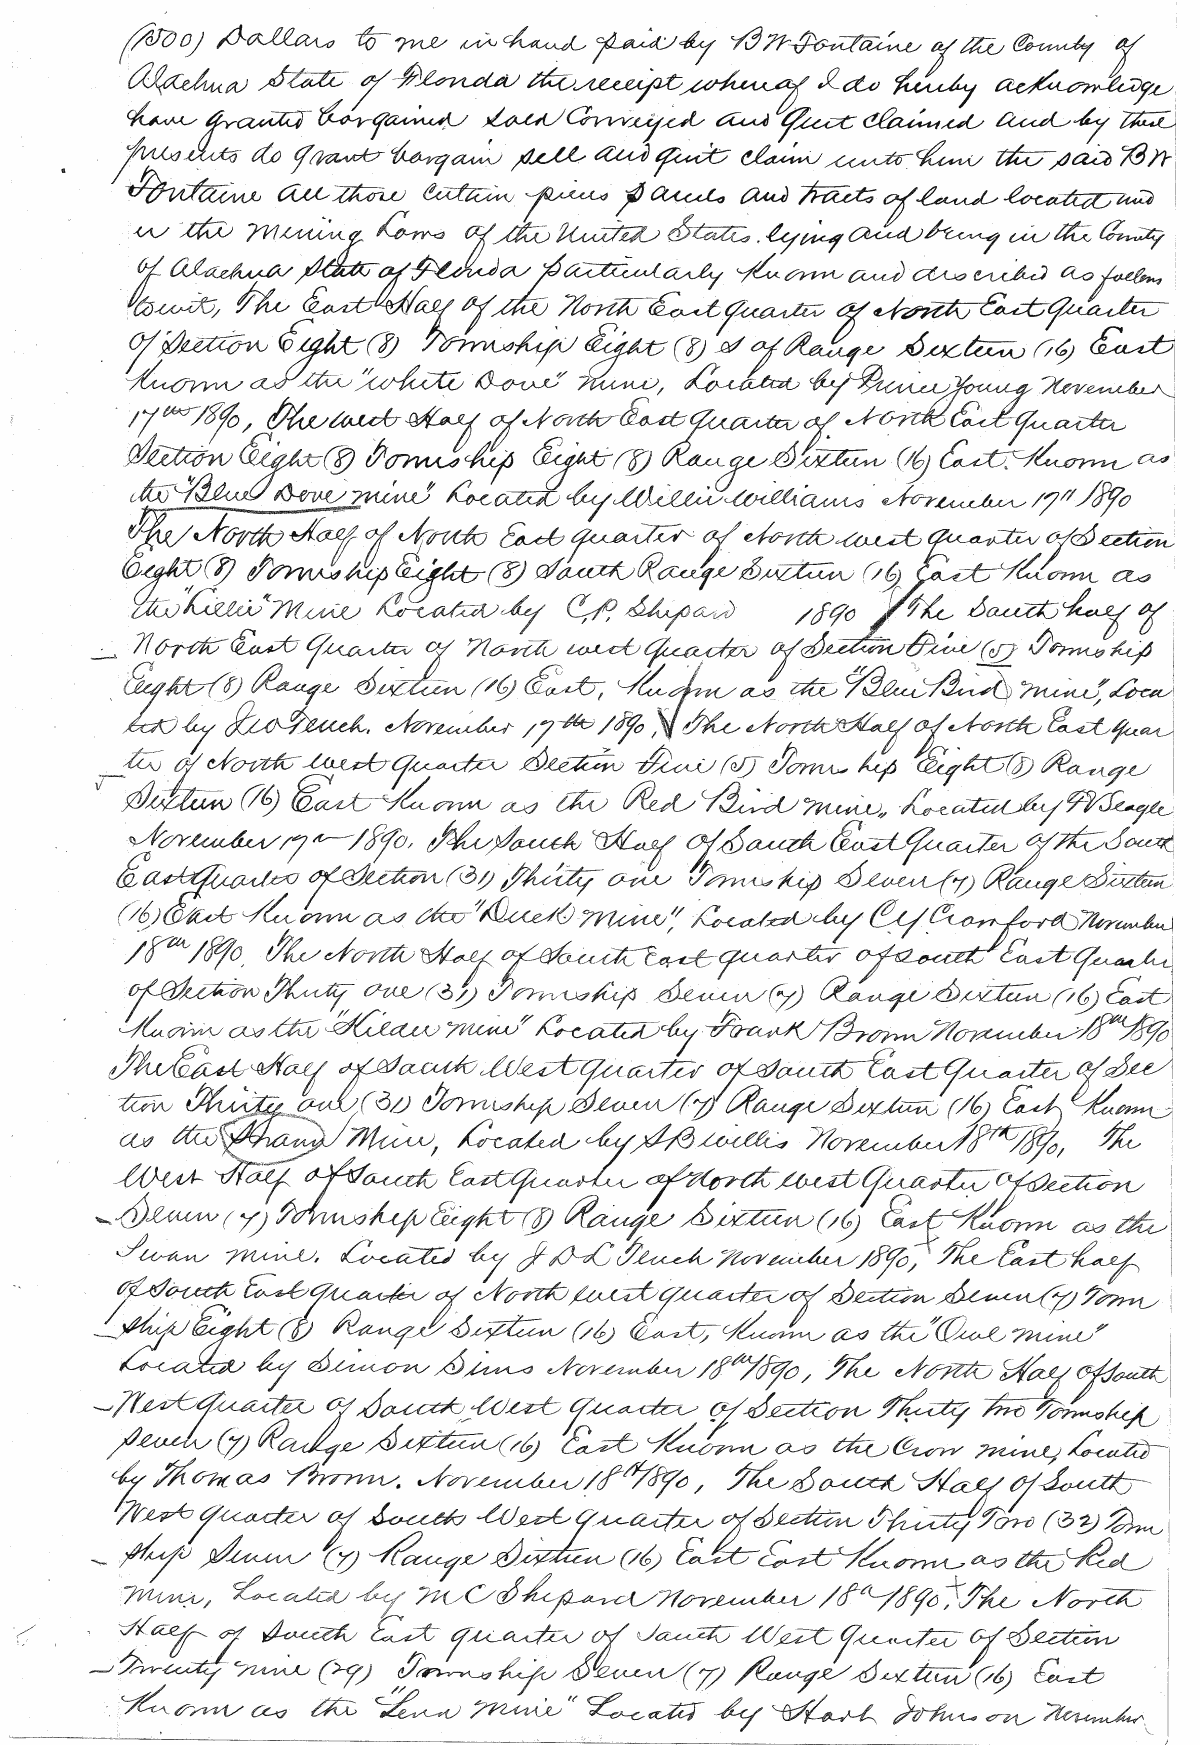 (1500) Dollars to me in hand paid by B W Fontaine of the County of
Alachua State of Florida the receipt whereof I do hereby acknowledge
have granted bargained sold Conveyed and Quit claimed and by these
presents do grant bargain sell and quit claim unto him the said B W
Fontaine all those certain pieces parcels and tracts of land located und
er the Mining Laws of the United States. lying and being in the County
of Alachua State of Florida particularly Known and described as follows
towit, The East Half of the North East Quarter of North East Quarter
of Section Eight (8) Township Eight (8) S of Range Sixteen (16) East
Known as the "White Dove" Mine, Located by Prince Young November
17th 1890, The west Half of North East Quarter of North East Quarter
Section Eight (8) Township Eight (8) Range Sixteen (16) East. Known as
the "Blue Dove mine" Located by Willie Williams November 17th 1890
The North Half of North East quarter of North west quarter of Section
Eight (8) Township Eight (8) South Range Sixteen (16) East Known as
the "Lillie" Mine Located by C. P. Shipard 1890 The South half of
North East Quarter of North west quarter of Section Five (5) Township
Eight (8) Range Sixteen (16) East, Known as the "Blue Bird mine", Loca
ted by Geo Tench. November 17th 1890, The North Half of North East quar
ter of North west quarter Section Five (5) Township Eight (8) Range
Sixteen (16) East Known as the Red Bird mine, Located by Beagle
November 17th 1890. The South Half of South East Quarter of the South
East Quarter of Section (31) Thirty one Township Seven (7) Range Sixteen
(16) East Known as the "Duck Mine", Located by Crawford November
18th 1890, The North Half of South East quarter of South East Quarter
of Section Thirty one (31) Township Seven (7) Range Sixteen (16) East
Known as the "Kildee mine" Located by Frank Brown November 18th 1890
The East Half of South West quarter of South East Quarter of Sec
tion Thirty one (31) Township Seven (7) Range Sixteen (16) East Known
as the Mine, Located by S B Willis November 18th 1890, The
West Half of South East Quarter of North West Quarter of Section
Seven (7) Township Eight (8) Range Sixteen (16) East Known as the
Swan mine. Located by J D L Tench November 1890, The East half
of South East quarter of North west quarter of Section Seven (7) Town
ship Eight (8) Range Sixteen (16) East, Known as the "Owl mine"
Located by Simon Sims November 18th 1890, The North Half of South
West Quarter of South West Quarter of Section Thirty two Township
Seven (7) Range Sixteen (16) East Known as the Crow mine, Located
by Thomas Brown. November 18th 1890, The South Half of South
West quarter of South West Quarter of Section Thirty Two (32) Town
ship Seven (7) Range Sixteen (16) East East Known as the Red
mine, Located by M C Shipard November 18th 1890, The North
Half of South East quarter of South West Quarter of Section
Twenty nine (29) Township Seven (7) Range Sixteen (16) East
Known as the "Lena mine" Located by Johnson November